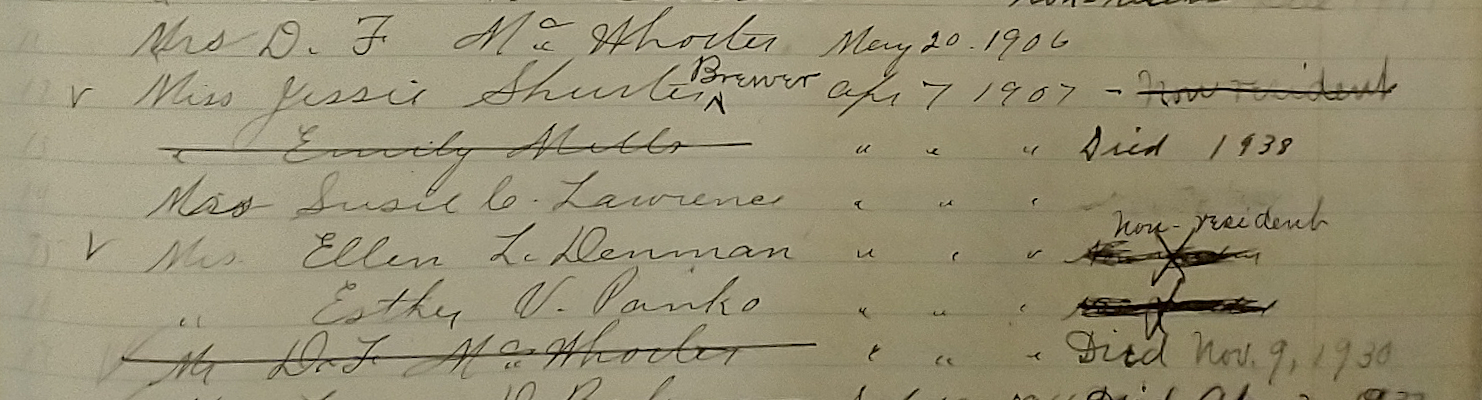 Mrs D. F. McWhorter May 20. 1906
v Miss Jessie Shurter Brewer Apr 7 1907 - Non resident
" Emily Mills " " " Died 1938
Miss Susie C. Lawrence " " "
non-resident
v Mrs. Ellen L. Denman " " "
" Esther V. Panko " " "
Mr D. F. McWhorter " " " Died Nov. 9, 1930